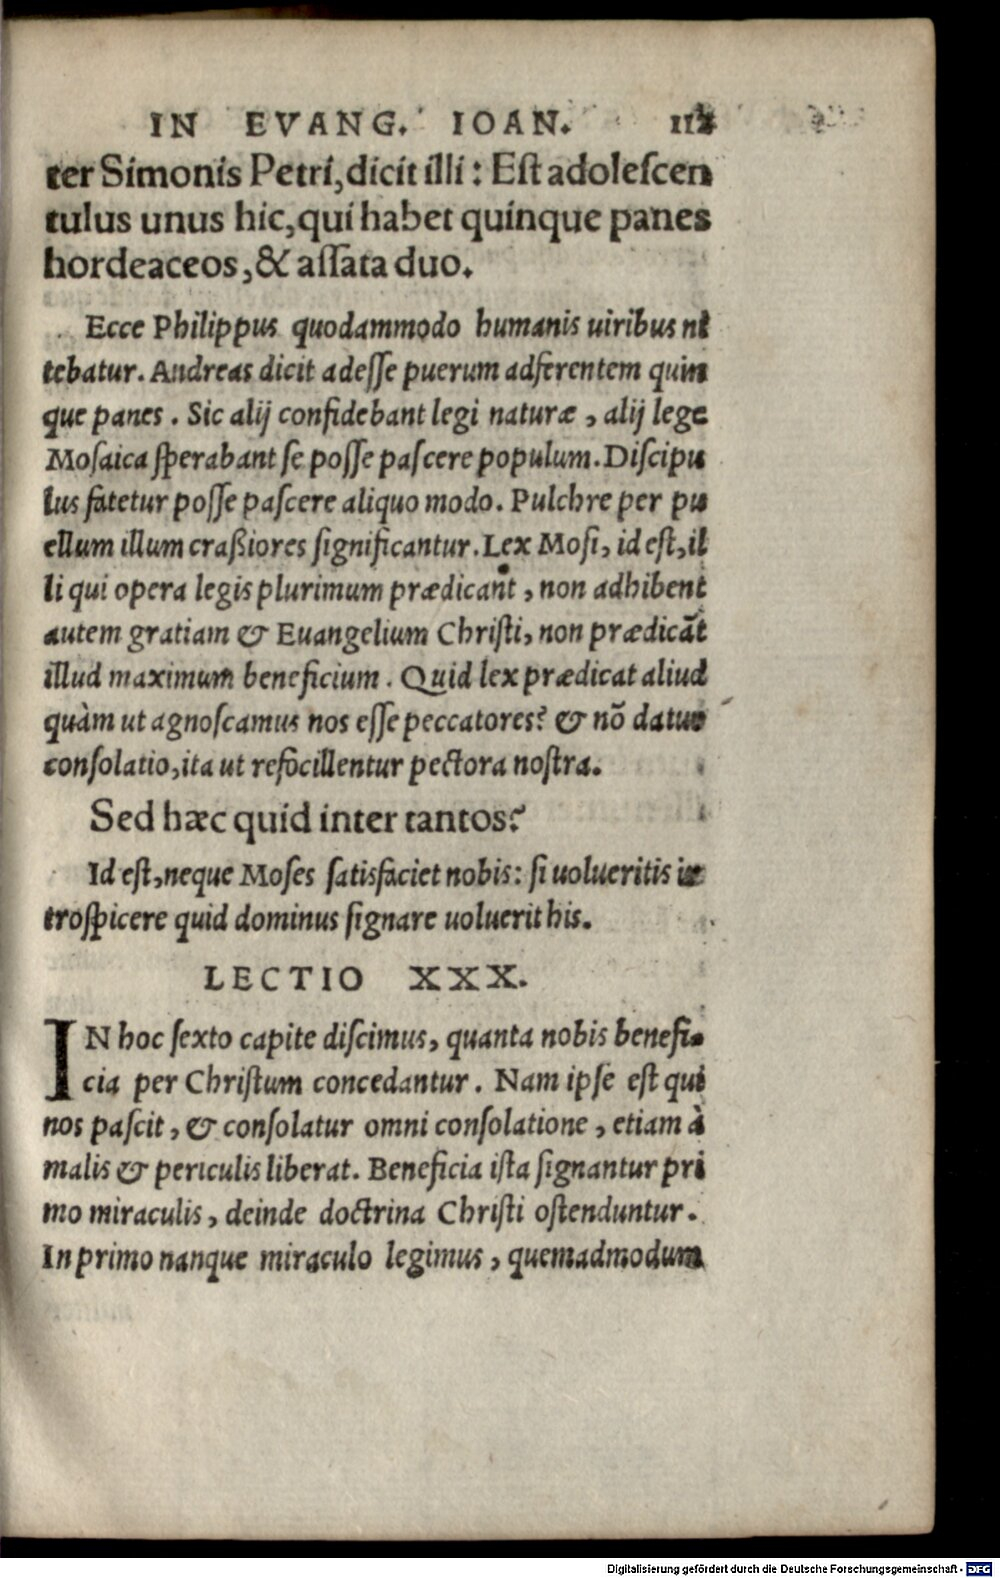 IN EVANG. IOAN.
ter Simonis Petri, dicit illi: Est adolescen
tulus unus hic, qui habet quinque panes
hordeaceos, & assata duo.
Ecce Philippus quodammodo humanis uiribus ni
tebatur. Andreas dicit adesse puerum adferentem quin
que panes. Sic alij confidebant legi naturæ, alij lege
Mosaica sperabant se posse pascere populum. Discipu
lus fatetur posse pascere aliquo modo. Pulchre per pu
ellum illum craßiores significantur. Lex Mosi, id est, il
li qui opera legis plurimum prædicant, non adhibent
autem gratiam & Euangelium Christi, non prædicãt
illud maximum beneficium. Quid lex prædicat aliud
quàm ut agnoscamus nos esse peccatores? & nõ datur
consolatio, ita ut refocillentur pectora nostra.
Sed hæc quid inter tantos?
Id est, neque Moses satisfaciet nobis: si uolueritis in
trospicere quid dominus signare uoluerit his.
LECTIO XXX.
IN hoc sexto capite discimus, quanta nobis benefi-
cia per Christum concedantur. Nam ipse est qui
nos pascit, & consolatur omni consolatione, etiam à
malis & periculis liberat. Beneficia ista signantur pri
mo miraculis, deinde doctrina Christi ostenduntur.
In primo nanque miraculo legimus, quemadmodum
Digitalisierung gefördert durch die Deutsche Forschungsgemeinschaft - DFG